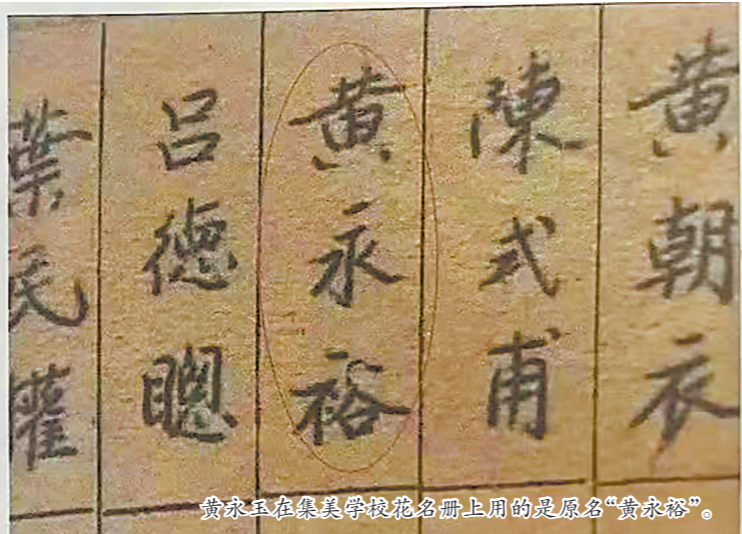 黄朝衣
陳式甫
黄永裕
吕德聰
葉民權
黄永玉在集美学校花名册上用的是原名“黄永裕”。